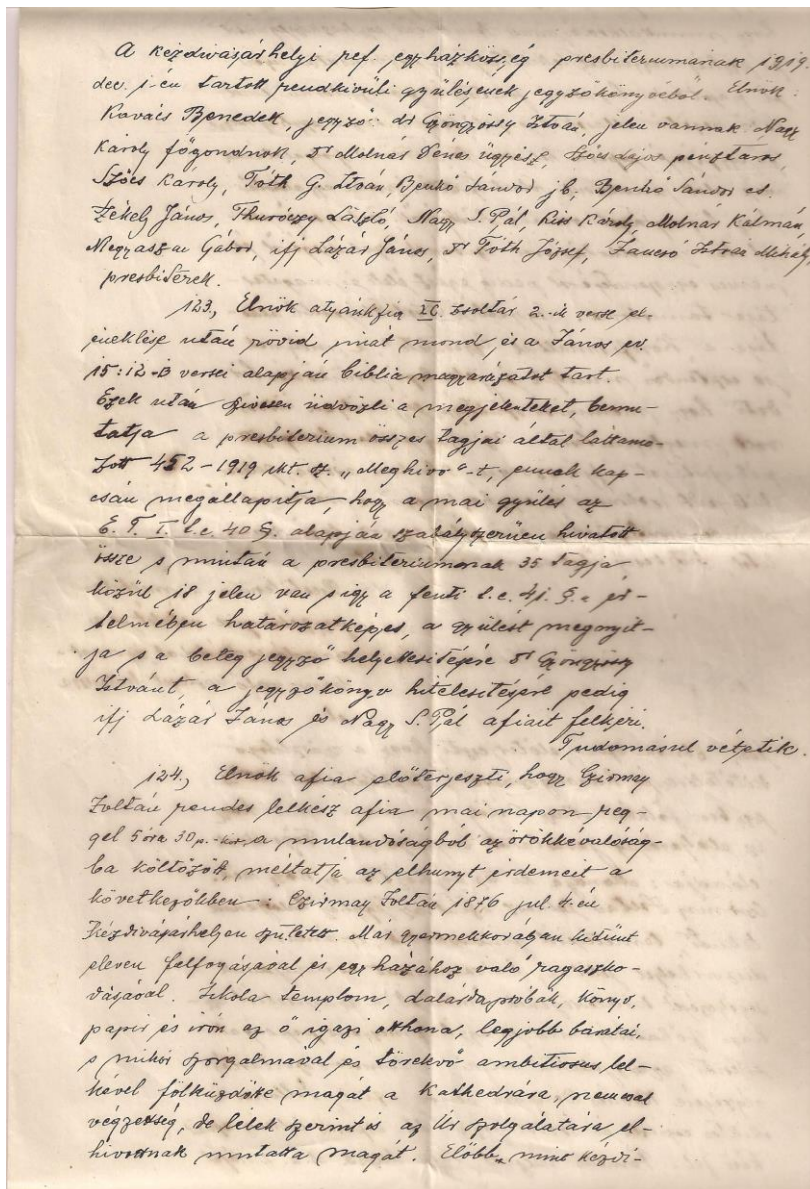 A kézdivásárhelyi ref. egyházközség presbiteriumának 1919.
dec. 1-én tartott rendkivüli gyülésének jegyzőkönyvéből. Elnök:
Kovács Benedek, jegyző: dr Gyöngyössy István, jelen vannak Nagy
Károly főgondnok, dr Molnár Dénes ügyész, Szőcs Lajos pénztáros,
Szőcs Károly, Tóth G. István, Benkő Sándor jb, Benkő Sándor cs.
Zékely János, Thuróczy László, Nagy S. Pál, Kiss Károly, Molnár Kálmán,
Megyaszai Gábor, ifj Lázár János, dr Tóth József, Jancsó István Mihály,
presbiterek.
123, Elnök atyánkfia XC. zsoltár 2.-ik verse el-
éneklése után rövid imát mond, és a János ev.
15:12-13 versei alapján biblia magyarázatot tart.
Ezek után szivesen üdvözli a megjelenteket, bemu-
tatja a presbiterium összes tagjai által láttamo-
zott 452-1919 ikt. sz. „Meghivó"-t, ennek kap-
csán megállapitja, hogy a mai gyülés az
E. T. I. t.c. 40 §. alapján szabályszerüen hivatott
össze s miután a presbiteriumnak 35 tagja
közül 18 jelen van s igy a fenti t.c. 41. §.a ér-
telmében határozatképes, a gyülést megnyit-
ja s a beteg jegyző helyettesitésére dr Gyöngyössy
Istvánt, a jegyzőkönyv hitelesitésére pedig
ifj Lázár János és Nagy S. Pál afiait felkéri.
Tudomásul vétetik.
124, Elnök afia előterjeszti, hogy Czirmay
Zoltán rendes lelkész afia mai napon reg-
gel 5 óra 30 p.-kor a mulandóságból az örökkévalóság-
ba költözött, méltatja az elhunyt érdemeit a
következőkben: Czirmay Zoltán 1876 jul. 4.-én
Kézdivásárhelyen született. Már gyermekkorában kitünt
eleven felfogásával és egyházához való ragaszko-
dásával. Iskola templom, dalárdapróbák, könyv,
papir és irón ez ő igazi otthona, legjobb barátai,
s mikor szorgalmával és törekvő ambitiosus lel-
kével fölküzdötte magát a Kathedrára, nemcsak
végzettség, de lélek szerint is az Úr szolgálatára el-
hivottnak mutatta magát. Előbb, mint kézdi-